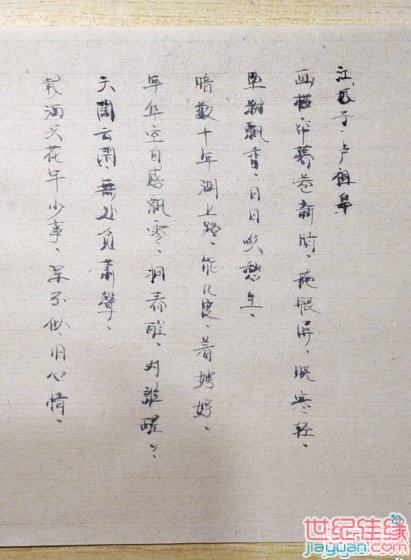 江城子·卢祖皋
画楼帘幕卷新晴、掩银屏、晓寒轻、
坠粉飘香、日日唤愁生、
暗数十年湖上路、能几度、着娉婷、
年华空自感飘零、拥春酲、对谁醒?、
天阔云闲、無处觅萧声、
载酒买花年少事、浑不似、旧心情、
世纪佳缘
jiayuan.com